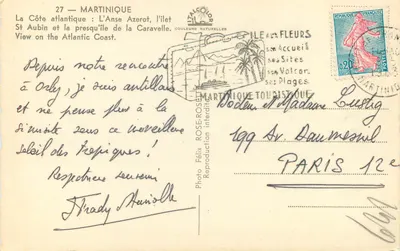 27 - MARTINIQUE
La Côte atlantique : L'Anse Azerot, l'îlet
St Aubin et la presqu'île de la Caravelle.
View on the Atlantic Coast.
COULEURS NATURELLES
ILE des FLEURS
son Accueil
ses Sites
son Volcan
ses Plages
MARTINIQUE TOURISTIQUE
0,20
MARTINIQUE
Photo Félix ROSE-ROSETTE
Reproduction interdite
Depuis notre rencontre
à Orly, je suis antillais
et ne pense plus à la
sous ce merveilleux
soleil des tropiques !
Respectueux souvenir
Docteur et Madame Lustig
199 Av. Daumesnil
PARIS 12e